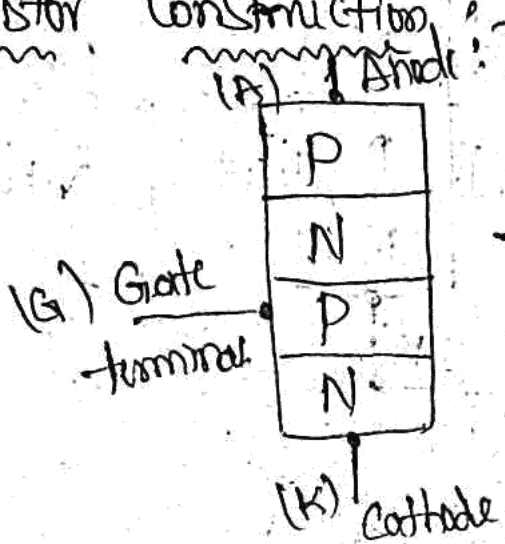 stor Construction :-
(A) Anode :
P
N
(G) Gate
P
terminal
N
(K) Cathode